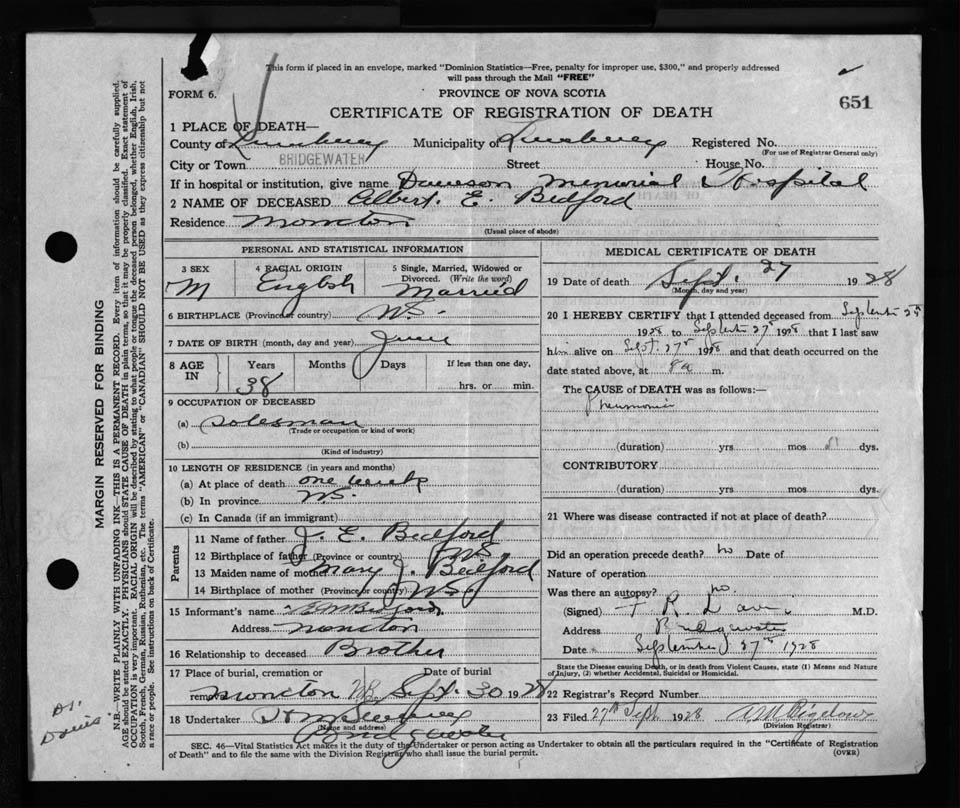 This form if placed in an envelope, marked "Dominion Statistics—Free, penalty for improper use, $300," and properly addressed
will pass through the Mail "FREE"
FORM 6.
PROVINCE OF NOVA SCOTIA
651
CERTIFICATE OF REGISTRATION OF DEATH
1 PLACE OF DEATH—
County of Lunenburg Municipality of Lunenburg Registered No.
(For use of Registrar General only)
City or Town BRIDGEWATER Street House No.
If in hospital or institution, give name Dawson Memorial Hospital
2 NAME OF DECEASED Albert. E. Bedford
Residence Moncton
(Usual place of abode)
PERSONAL AND STATISTICAL INFORMATION
3 SEX 4 RACIAL ORIGIN 5 Single, Married, Widowed or
Divorced. (Write the word)
M English Married
6 BIRTHPLACE (Province or country) N.S.
7 DATE OF BIRTH (month, day and year) June
8 AGE IN Years Months Days If less than one day,
38 hrs. or min.
9 OCCUPATION OF DECEASED
(a) Salesman
(Trade or occupation or kind of work)
(b)
(Kind of industry)
10 LENGTH OF RESIDENCE (in years and months)
(a) At place of death one week
(b) In province N.S.
(c) In Canada (if an immigrant)
Parents
11 Name of father J. E. Bedford
12 Birthplace of father (Province or country) NS
13 Maiden name of mother Mary J. Bedford
14 Birthplace of mother (Province or country) NS
15 Informant's name Bedford
Address Moncton
16 Relationship to deceased Brother
17 Place of burial, cremation or removal Date of burial
Moncton NB Sept. 30 1928
18 Undertaker
(Name and address)
Bridgewater
MEDICAL CERTIFICATE OF DEATH
19 Date of death Sept. 27 1928
(Month, day and year)
20 I HEREBY CERTIFY that I attended deceased from September 25th
1928 to September 27th 1928 that I last saw
him alive on Sept. 27th 1928 and that death occurred on the
date stated above, at 8 a m.
The CAUSE of DEATH was as follows:—
Pneumonia
(duration) yrs mos dys.
CONTRIBUTORY
(duration) yrs. mos. dys.
21 Where was disease contracted if not at place of death?
Did an operation precede death? no Date of
Nature of operation
Was there an autopsy? no.
(Signed) R. M.D.
Address Bridgewater
Date September 27th 1928
State the Disease causing Death, or in death from Violent Causes, state (1) Means and Nature
of Injury, (2) whether Accidental, Suicidal or Homicidal.
22 Registrar's Record Number
23 Filed 27th Sept 1928
(Division Registrar)
SEC. 46—Vital Statistics Act makes it the duty of the Undertaker or person acting as Undertaker to obtain all the particulars required in the "Certificate of Registration
of Death" and to file the same with the Division Registrar who shall issue the burial permit. (OVER)
MARGIN RESERVED FOR BINDING
N.B.—WRITE PLAINLY WITH UNFADING INK—THIS IS A PERMANENT RECORD. Every item of information should be carefully supplied.
AGE should be stated EXACTLY. PHYSICIANS should STATE CAUSE OF DEATH in plain terms, so that it may be properly classified. Exact statement of
OCCUPATION is very important. RACIAL ORIGIN will be described by stating to what people or tongue the deceased person belonged, whether English, Irish,
Scotch, French, German, Russian, Ruthenian, etc. The terms "AMERICAN" or "CANADIAN" SHOULD NOT BE USED as they express citizenship but not
a race or people. See instructions on back of Certificate.
Dr.